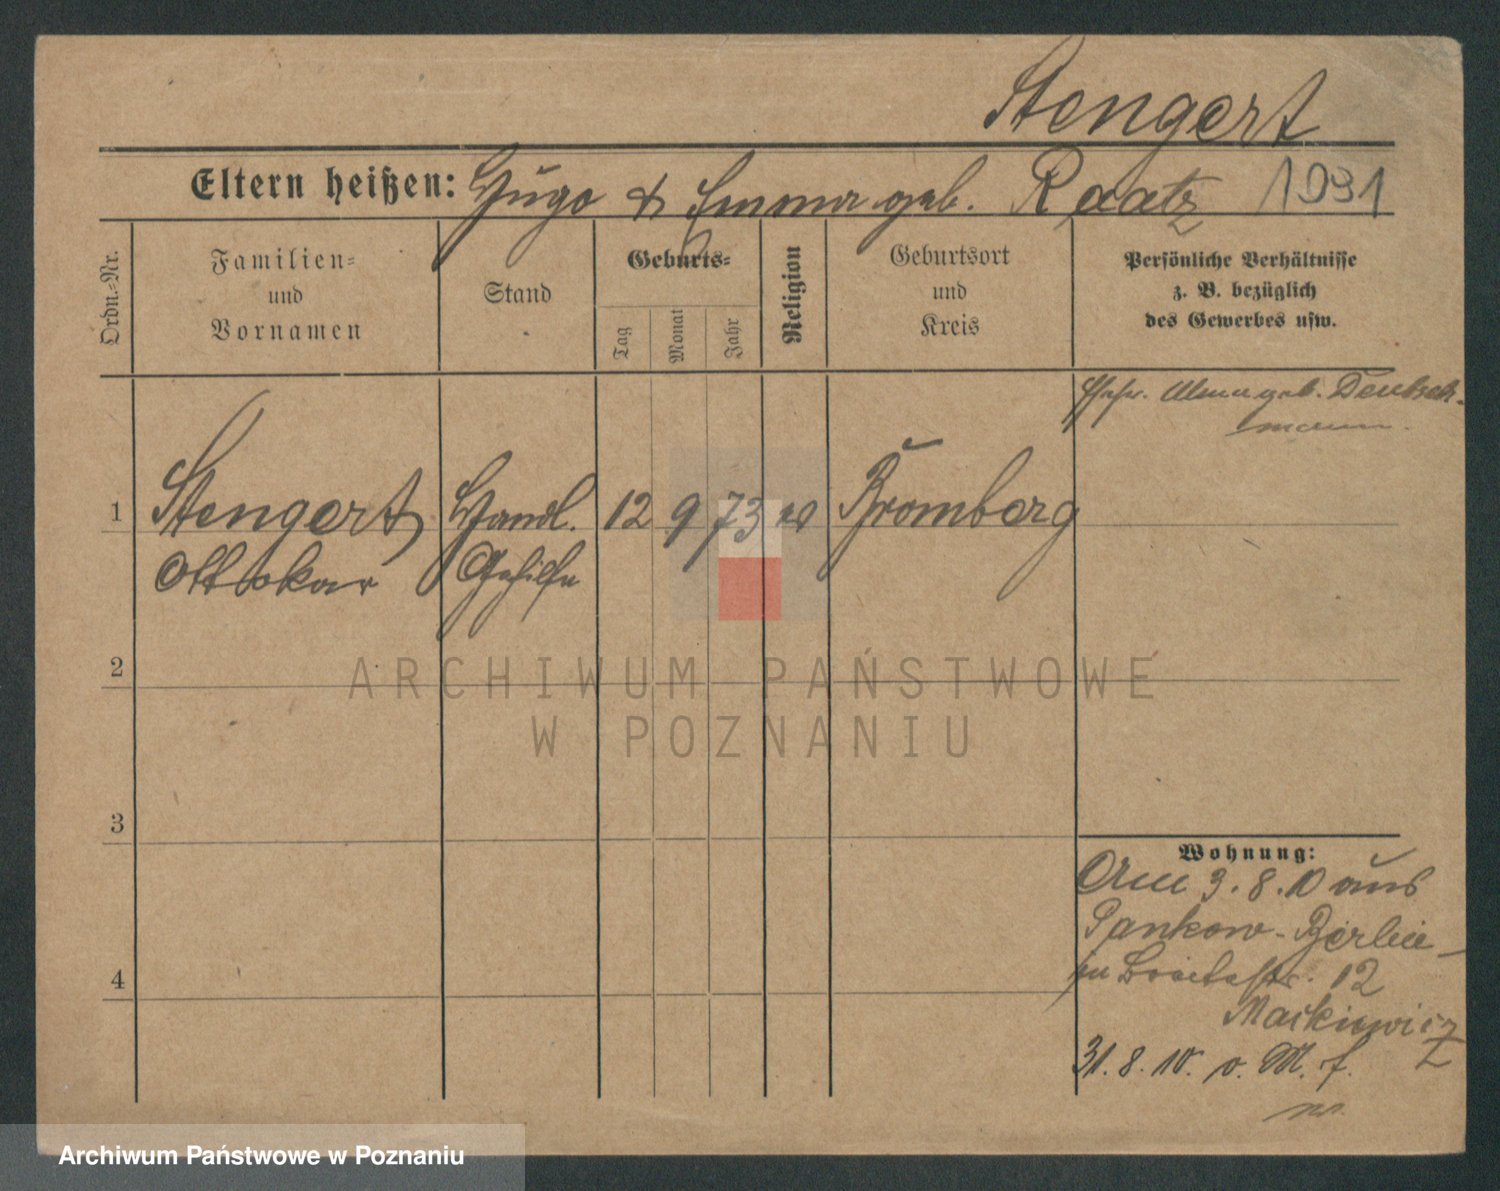 Stengert
Eltern heißen: Hugo & Emma geb. Raatz 1931
Ordn.-Nr.
Familien-
und
Vornamen
Stand
Geburts-
Tag
Monat
Jahr
Religion
Geburtsort
und
Kreis
Persönliche Verhältnisse
z. B. bezüglich
des Gewerbes usw.
Ehefr. Alma geb. Deutsch-
mann.
1 Stengert Handl. 12 9 73 Bromberg
Ottokar Gehilfe
2
3
4
Wohnung:
Am 3. 8. 10 aus
Pankow-Berlin
12
Maikiewicz
31. 8. 10. v. M. f.
ARCHIWUM PAŃSTWOWE
W POZNANIU
Archiwum Państwowe w Poznaniu